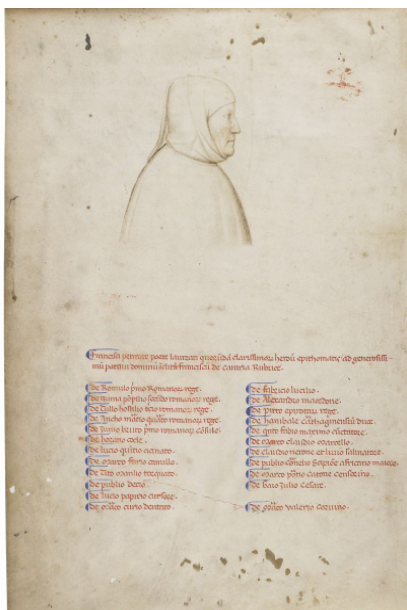 Francisci petrarce poete laureati quorūdā clarissimoꝝ heroū epithomatis ad generosissi-
mū patavi dominū Francisci de carraria Rubrice.
de Romulo pmo Romanoꝝ rege.
de numa pōpilio secūdo romanoꝝ rege.
de tullo hostilio tcio romanoꝝ rege.
de Ancho marcio quarto romanoꝝ rege.
de Junio bruto pmo romanoꝝ cōsule.
de horatio cocle.
de lucio quintio cincinato.
de marco furio camillo.
de Tito manlio torquato.
de publio decio.
de lucio papirio cursore.
de marco curio dentato.
de fabricio lucinio.
de Alexandro macedone.
de Pirro epirotaꝝ rege.
de hanibale carthaginensiū duce.
de quīto fabio maximo
de marco claudio marcello.
de claudio nerone et livio salinatore.
de publio cornelio scipiōe africano maiore.
de marco porcio catone censorino.
de Julio cesare.
de marco valerio corvino.